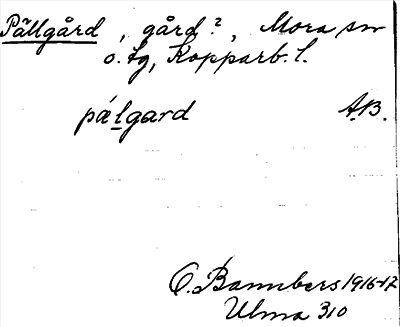 Pällgård, gård?, Mora sn
o. tg, Kopparb. l.
pǽlgard A.B.
O. Bannbers 1916-17
Ulma 310